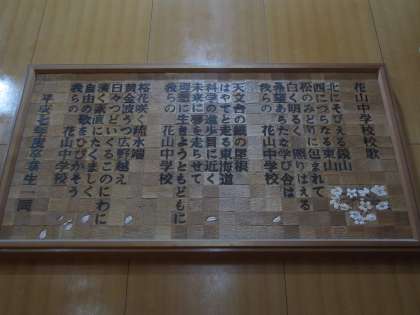 花山中学校校歌
北にそびえる鏡山
西につらなる東山
松のみどりに包まれて
白く明るく 照りはえる
希望あらたな学び舎は
我らの 花山中学校
天文台の銀の屋根
はやてと走る東海道
科学の進歩目に近く
未来に夢を走らせて
理想に生きようともどもに
我らの 花山中学校
桜花咲く疏水端
黄金波うつ広野越え
日々つどいくるこのにわに
清く素直にたくましく
自由の歌をひびかそう
我らの 花山中学校
平成七年度卒業生一同